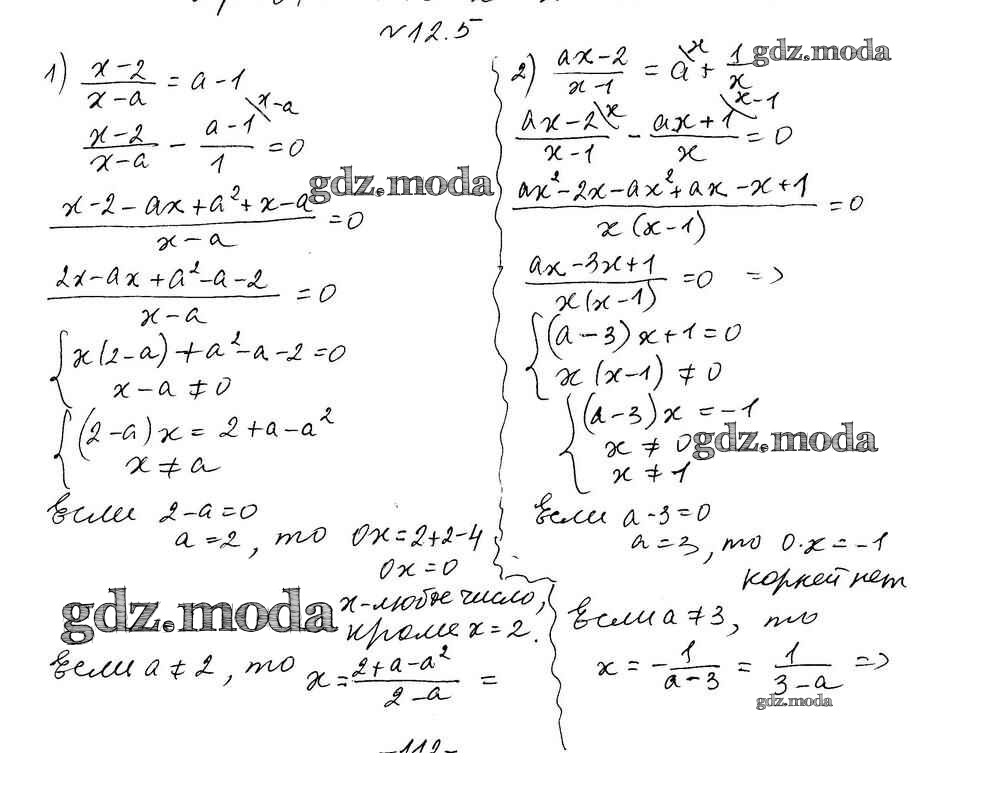 №12.5
1) (x-2)/(x-a) = a-1
(x-2)/(x-a) - (a-1)/1 \x-a = 0
(x-2-ax+a²+x-a)/(x-a) = 0
(2x-ax+a²-a-2)/(x-a) = 0
{ x(2-a)+a²-a-2=0
x-a≠0
{ (2-a)x = 2+a-a²
x≠a
Если 2-a=0
a=2, то 0x=2+2-4
0x=0
x-любое число,
кроме x=2.
Если a≠2, то x = (2+a-a²)/(2-a) =
2) (ax-2)/(x-1) = a\x + 1/x
(ax-2)/(x-1) \x - (ax+1)/x \x-1 = 0
(ax²-2x-ax²+ax-x+1)/(x(x-1)) = 0
(ax-3x+1)/(x(x-1)) = 0 =>
{ (a-3)x+1=0
x(x-1)≠0
{ (a-3)x = -1
x≠0
x≠1
Если a-3=0
a=3, то 0·x=-1
корней нет
Если a≠3, то
x = -1/(a-3) = 1/(3-a) =>
-112-
gdz.moda
gdz.moda
gdz.moda
gdz.moda
gdz.moda